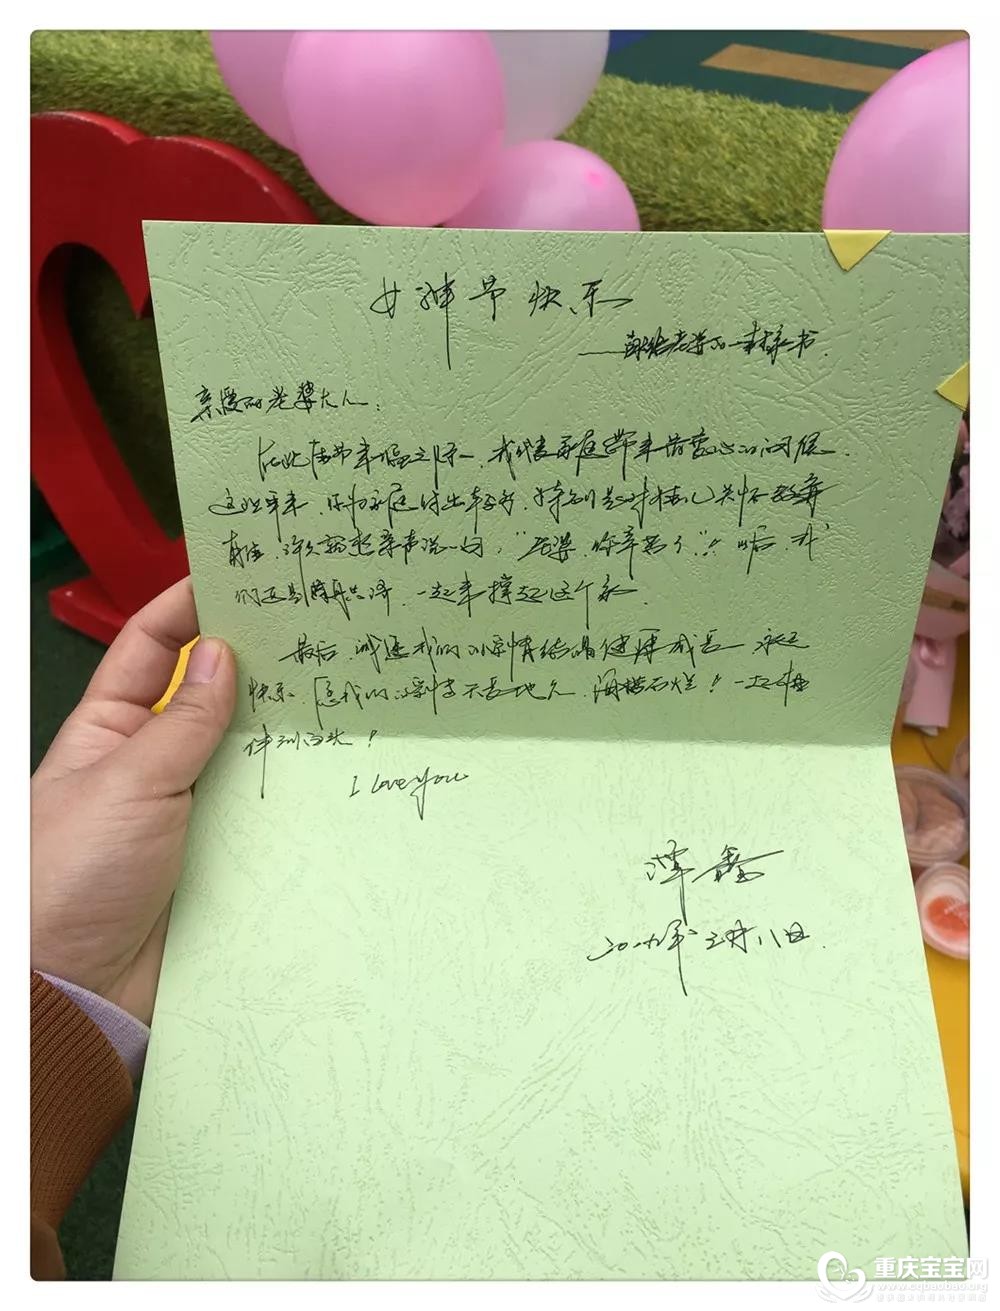 女神节快乐
——献给老婆的一封情书.
亲爱的老婆大人:
在此佳节来临之际, 我代表家庭带来最衷心的问候.
这些年来, 你为家庭付出辛劳, 特别是对
说一句, "老婆, 你辛苦了"! 以后, 我
们还是同舟共济, 一起来撑起这个家.
最后, 祝愿我们的小家情结晶健康成长, 永远
快乐! 愿我们的 天长地久, 海枯石烂! 一起相
伴到白头!
I Love you
谭鑫
二0一九年 三月八日.
重庆宝宝网
www.cqbaobao.org